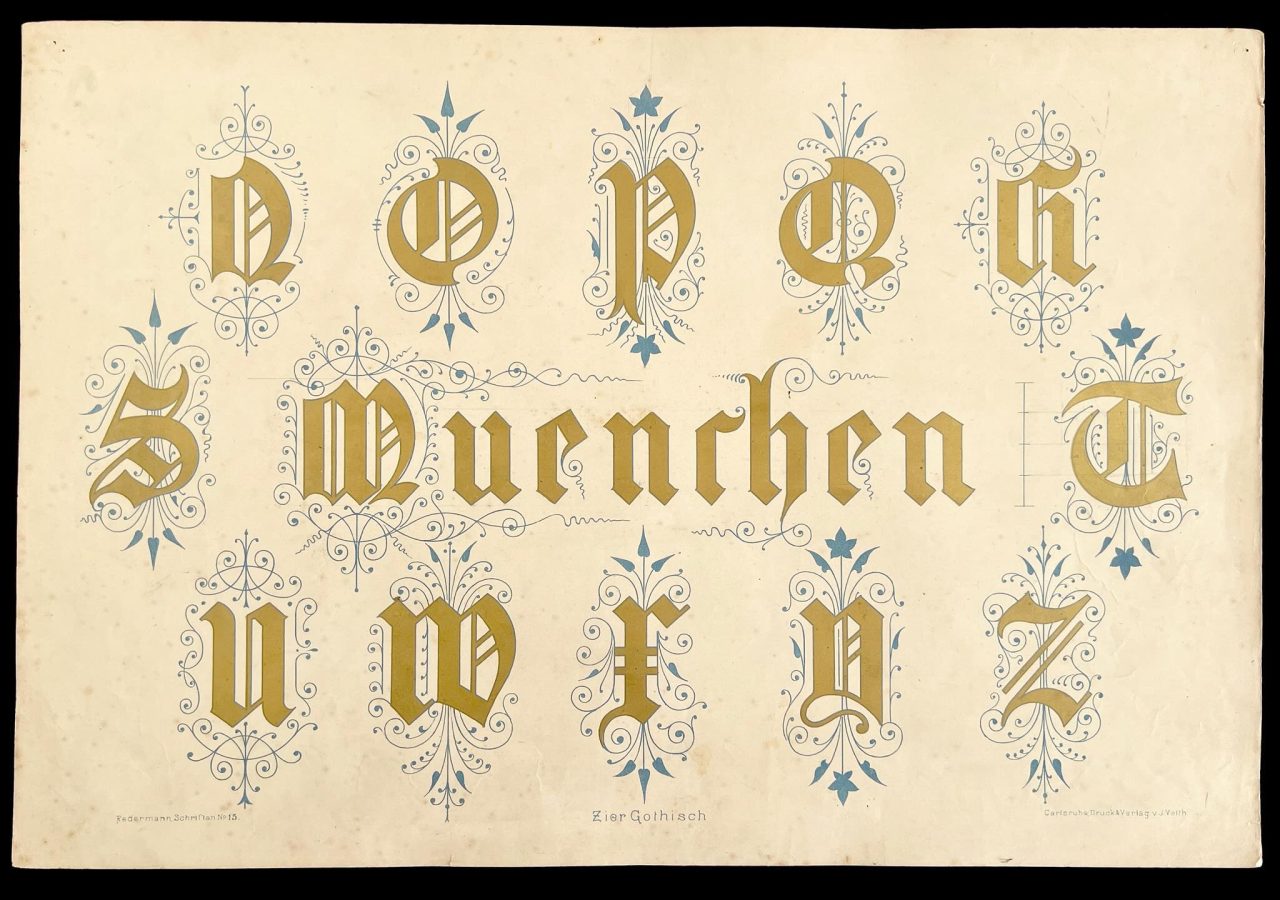 N O P Q R
S Muenchen T
U W X Y Z
Redermann, Schriften № 15.
Zier Gothisch
Carlsruhe, Druck & Verlag v. J. Veith.